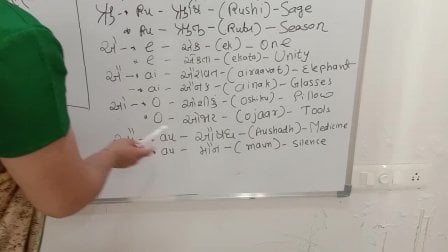 ઋ → Ru → ઋષિ - (Rushi) - Sage
" Ru - ઋતુ - (Rutu) - Season
એ → e - એક - (ek) - One
" e - એકતા - (ekata) - Unity
ઐ → ai - ઐરાવત - (airaavat) - Elephant
" ai - ઐનક - (Ainak) - Glasses
ઓ → O - ઓશીકું - (Oshiku) - Pillow
" O - ઓજાર - (ojaar) - Tools
au - ઔષધ - (Aushadh) - Medicine
au - મૌન - (maun) - Silence